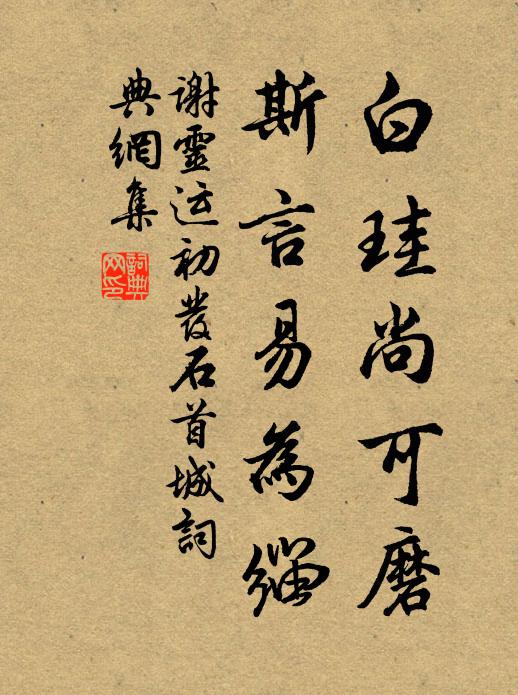 白珪尚可磨
斯言易為緇
謝靈运初發石首城詞
典網集
詞典
网印